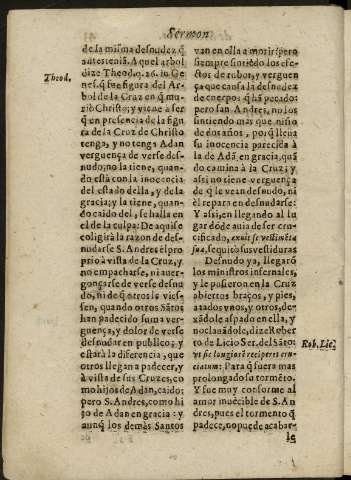 Sermon
de la misma desnudez q̃
antes tenia. A quel arbol
dize Theod. q. 26. in Ge
nes. q̃ fue figura del Ar-
bol de la Cruz en q̃ mu-
rio Christo; y viene a ser
q̃ en presencia de la figu
ra de la Cruz de Christo
tenga, y no tenga Adan
verguença de verse des-
nudo; no la tiene, quan-
do està con la inocencia
del estado della, y de la
gracia; y la tiene, quan-
do caido del, se halla en
el de la culpa: De aqui se
coligirà la razon de des-
nudarse S. Andres el pro
prio à vista de la Cruz, y
no empacharse, ni aver-
gonçarse de verse desnu
do, ni de q̃ otros le vies-
sen, quando otros Sātos
han padecido suma ver-
guença, y dolor de verse
desnudar en publico; y
estarà la diferencia, que
otros llegan a padecer, y
à vista de sus Cruzes, co
mo hijos de Adan, caido;
pero S. Andres, como hi
jo de Adan en gracia: y
aunq̃ los demàs Santos
Theod.
van en ella a morir; pero
siempre sintiēdo los efe-
ctos de rubor, y verguen
ça que causa la desnudez
de cuerpo q̃ hà pecado:
pero san Andres, no los
sintiendo mas que niño
de dos años, por q̃ lleua
su inocencia parecida à
la de Adã, en gracia, quã
do camina à la Cruz; y
assi no tiene verguença
de q̃ le vean desnudo, ni
èl repara en desnudarse:
Y assi, en llegando al lu
gar dōde auia de ser cru-
cificado, exuit se vestimēta
sua, se quitò sus vestiduras
Desnudo ya, llegarō
los ministros infernales,
y le pusieron en la Cruz
abiertos braços, y pies,
atados vnos, y otros, de-
xãdole aspado en ella, y
no clauãdole, dize Rober
to de Licio Ser. del Sãto:
vt sic longiorẽ reciperet cru-
ciatum: Para q̃ fuera mas
prolongado su tormẽto.
Y fue muy conforme al
amor inuẽcible de S. An
dres, pues el tormento q̃
padece, no puede acabar-
Rob. Lic.
le